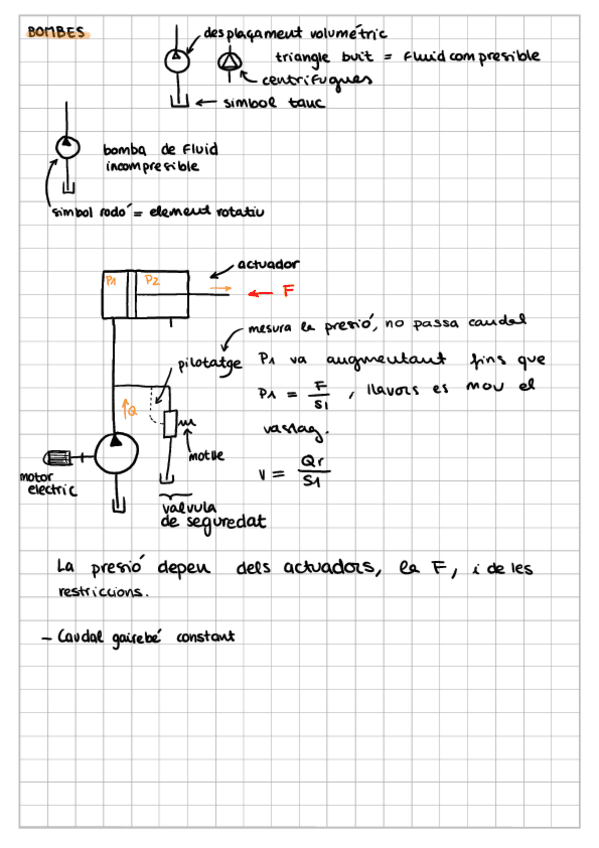 BOMBES
desplaçament volumétric
triangle buit = fluid compresible
centrifugues
simbol tanc
bomba de fluid
incompresible
simbol rodó = element rotatiu
actuador
P1 P2
F
mesura la presió, no passa caudal
pilotatge
P1 va augmentant fins que
P1 = F/S1, llavors es mou el
vastag.
Q
motlle
V = Qr/S1
motor
electric
valvula
de seguredat
La presió depen dels actuadors, la F, i de les
restriccions.
- Caudal gairebé constant